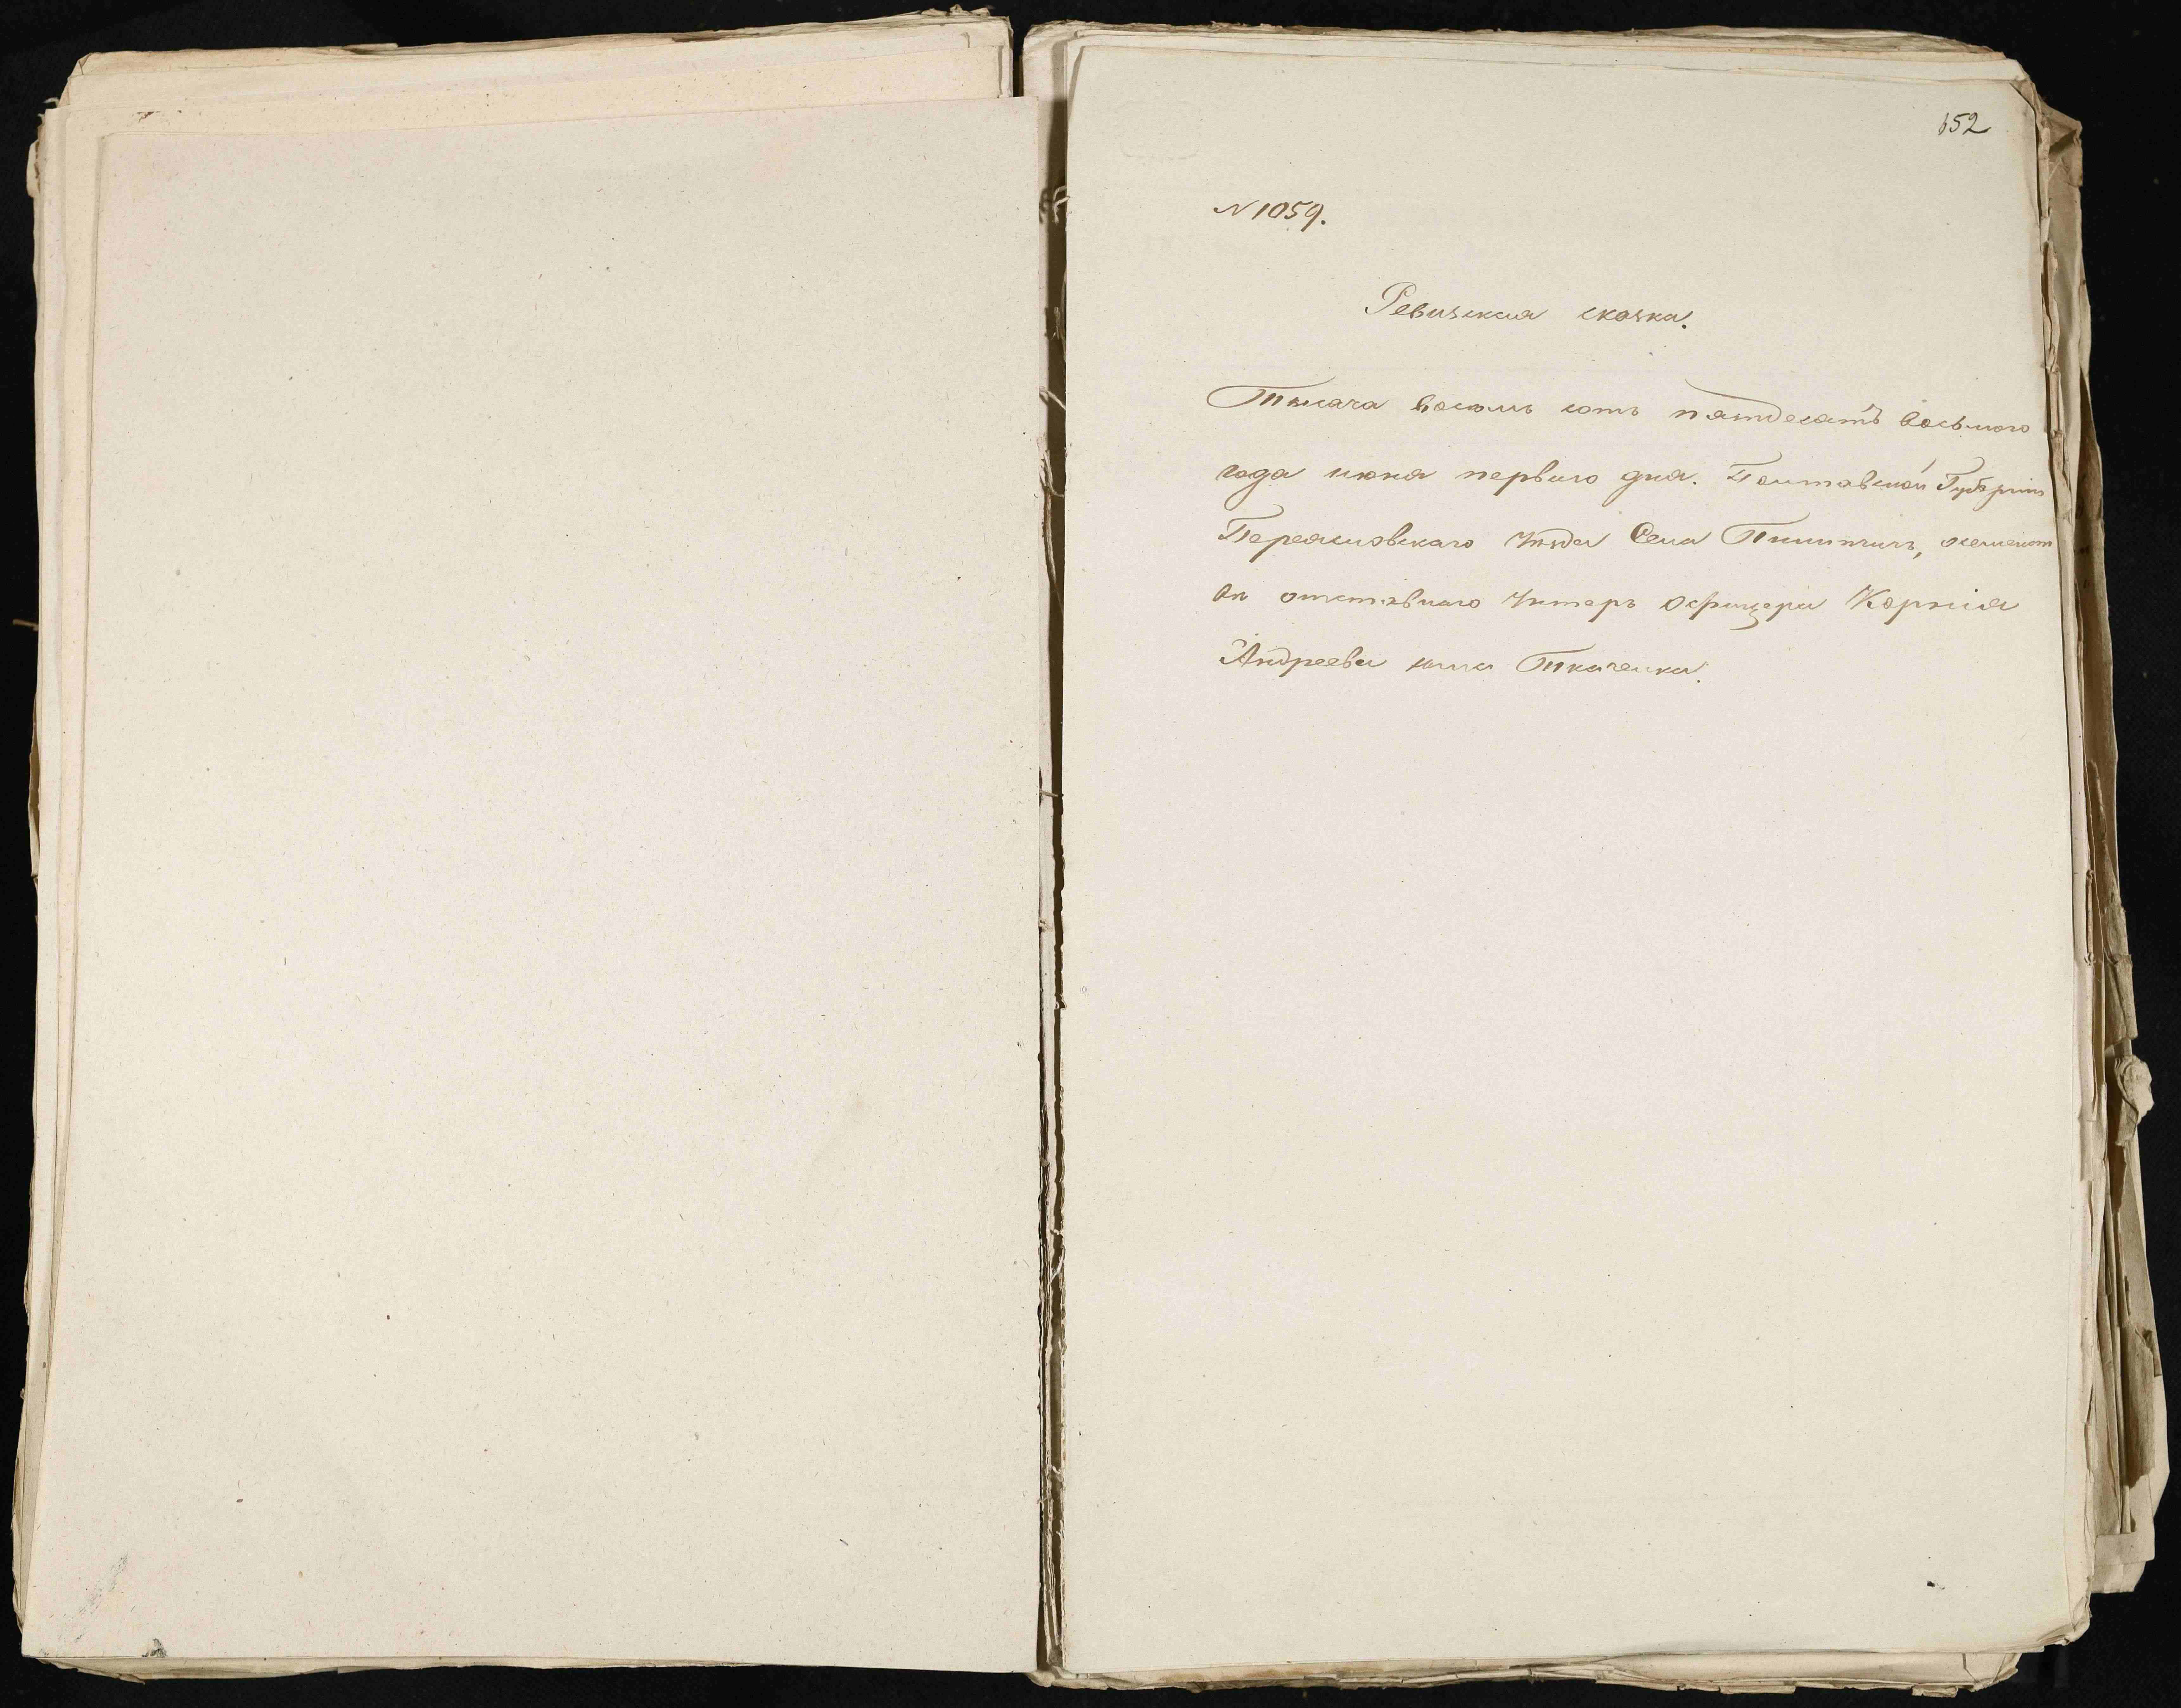 652
N 1059.
Ревизская сказка.
Тысяча восемь сотъ пятдесатъ восьмого
года июня первого дня. Полтавской Губерніи
Переясловскаго Уезда Села Пилипчи, семейст
ва отставнаго Унтеръ Офицера Корнія
Андреева сына Ткаченка.